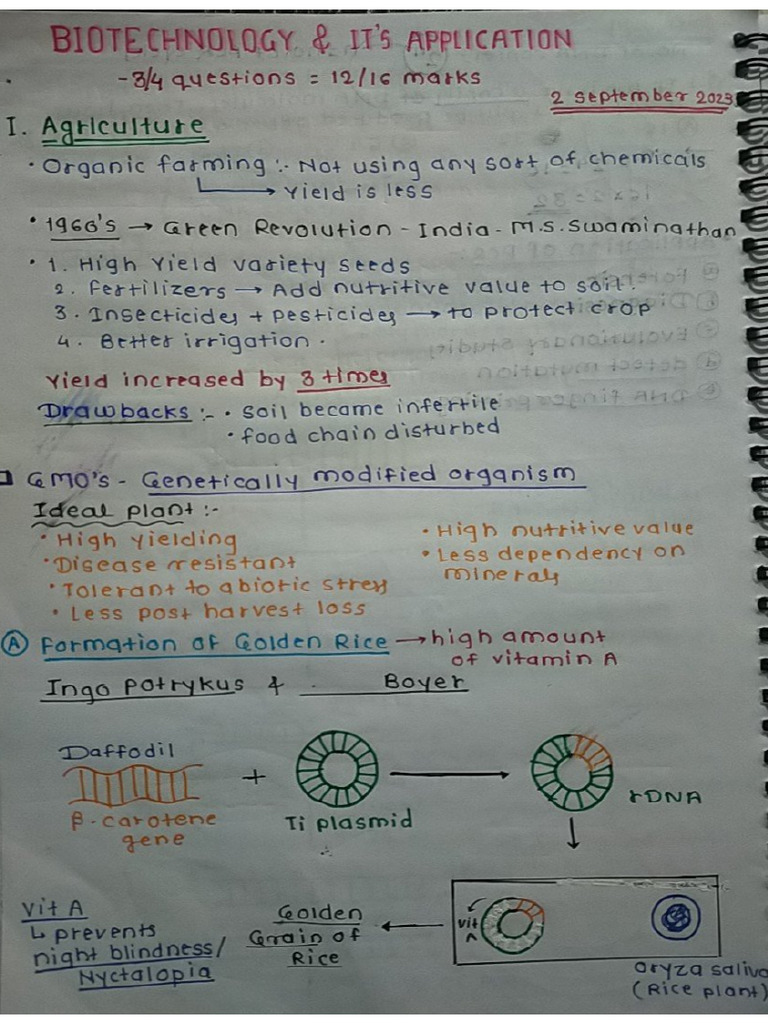 BIOTECHNOLOGY & IT'S APPLICATION
- 3/4 questions = 12/16 marks
2 September 2023
I. Agriculture
· Organic farming :- Not using any sort of chemicals
→ Yield is less
· 1960's → Green Revolution - India - M.S. Swaminathan
· 1. High Yield variety seeds
2. Fertilizers → Add nutritive value to soil.
3. Insecticides + pesticides → to protect crop
4. Better irrigation.
Yield increased by 3 times
Drawbacks :- · soil became infertile
· food chain disturbed
GMO's - Genetically modified organism
Ideal plant :-
· High yielding
· Disease resistant
· Tolerant to abiotic stress
· Less post harvest loss
· High nutritive value
· Less dependency on
minerals
A Formation of Golden Rice → high amount
of vitamin A
Ingo Potrykus & Boyer
Daffodil
+
β-carotene
gene
Ti plasmid
rDNA
vit
A
Oryza saliva
(Rice plant)
Golden
Grain of
Rice
Vit A
↳ prevents
night blindness/
Nyctalopia